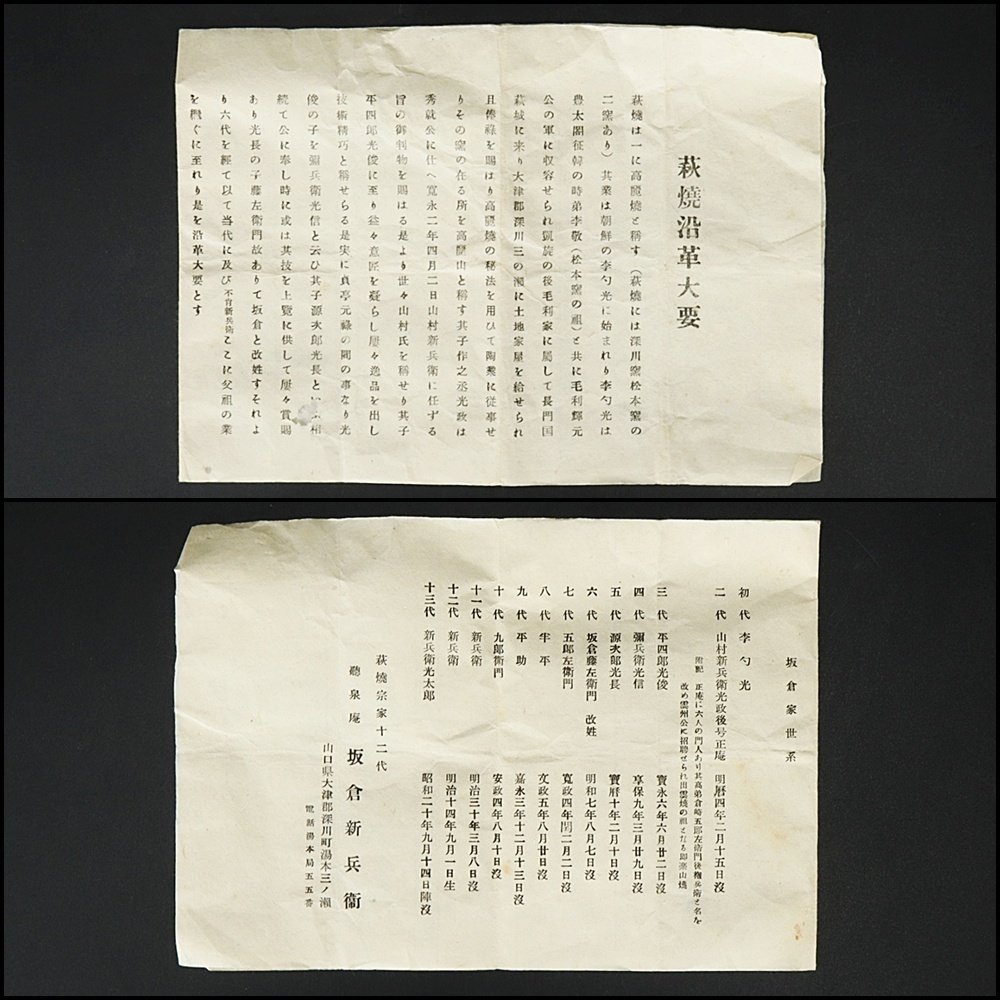 萩燒沿革大要
萩燒は一に高麗燒と稱す(萩燒には深川窯松本窯の
二窯あり)其業は朝鮮の李勺光に始まれり李勺光は
豊太閤征韓の時弟李敬(松本窯の祖)と共に毛利輝元
公の軍に収容せられ凱旋の後毛利家に屬して長門国
萩城に来り大津郡深川三の瀬に土地家屋を給せられ
且俸祿を賜はり高麗燒の秘法を用ひて陶業に従事せ
りその窯の在る所を高麗山と稱す其子作之丞光政は
秀就公に仕へ寛永二年四月二日山村新兵衛に任ずる
旨の御判物を賜はる是より世々山村氏を稱せり其子
平四郎光俊に至り益々意匠を凝らし屡々逸品を出し
技術精巧と稱せらる是実に貞享元祿の間の事なり光
俊の子を彌兵衛光信と云ひ其子源次郎光長と 相
続て公に奉し時に或は其技を上覽に供して屡々賞賜
あり光長の子藤左衛門故ありて坂倉と改姓すそれよ
り六代を經て以て当代に及び不肖新兵衛ここに父祖の業
を繼ぐに至れり是を沿革大要とす
坂倉家世系
初代 李勺光
二代 山村新兵衛光政後号正庵 明暦四年二月十五日沒
附記 正庵に六人の門人あり其高弟倉崎五郎左衛門後權兵衛と名を
改め雲州公に招聘せられ出雲燒の祖となる即楽山燒
三代 平四郎光俊 寶永六年六月廿二日沒
四代 彌兵衛光信 享保九年三月廿九日沒
五代 源次郎光長 寶暦十年二月十日沒
六代 坂倉藤左衛門 改姓 明和七年八月七日沒
七代 五郎左衛門 寛政四年閏二月二日沒
八代 半平 文政五年八月廿日沒
九代 平助 嘉永三年十二月十三日沒
十代 九郎衛門 安政四年八月十日沒
十一代 新兵衛 明治三十年三月八日沒
十二代 新兵衛 明治十四年九月一日生
十三代 新兵衛光太郎 昭和二十年九月十四日陣沒
萩燒宗家十二代
聽泉庵 坂倉新兵衞
山口県大津郡深川町湯本三ノ瀬
電話湯本局五五番